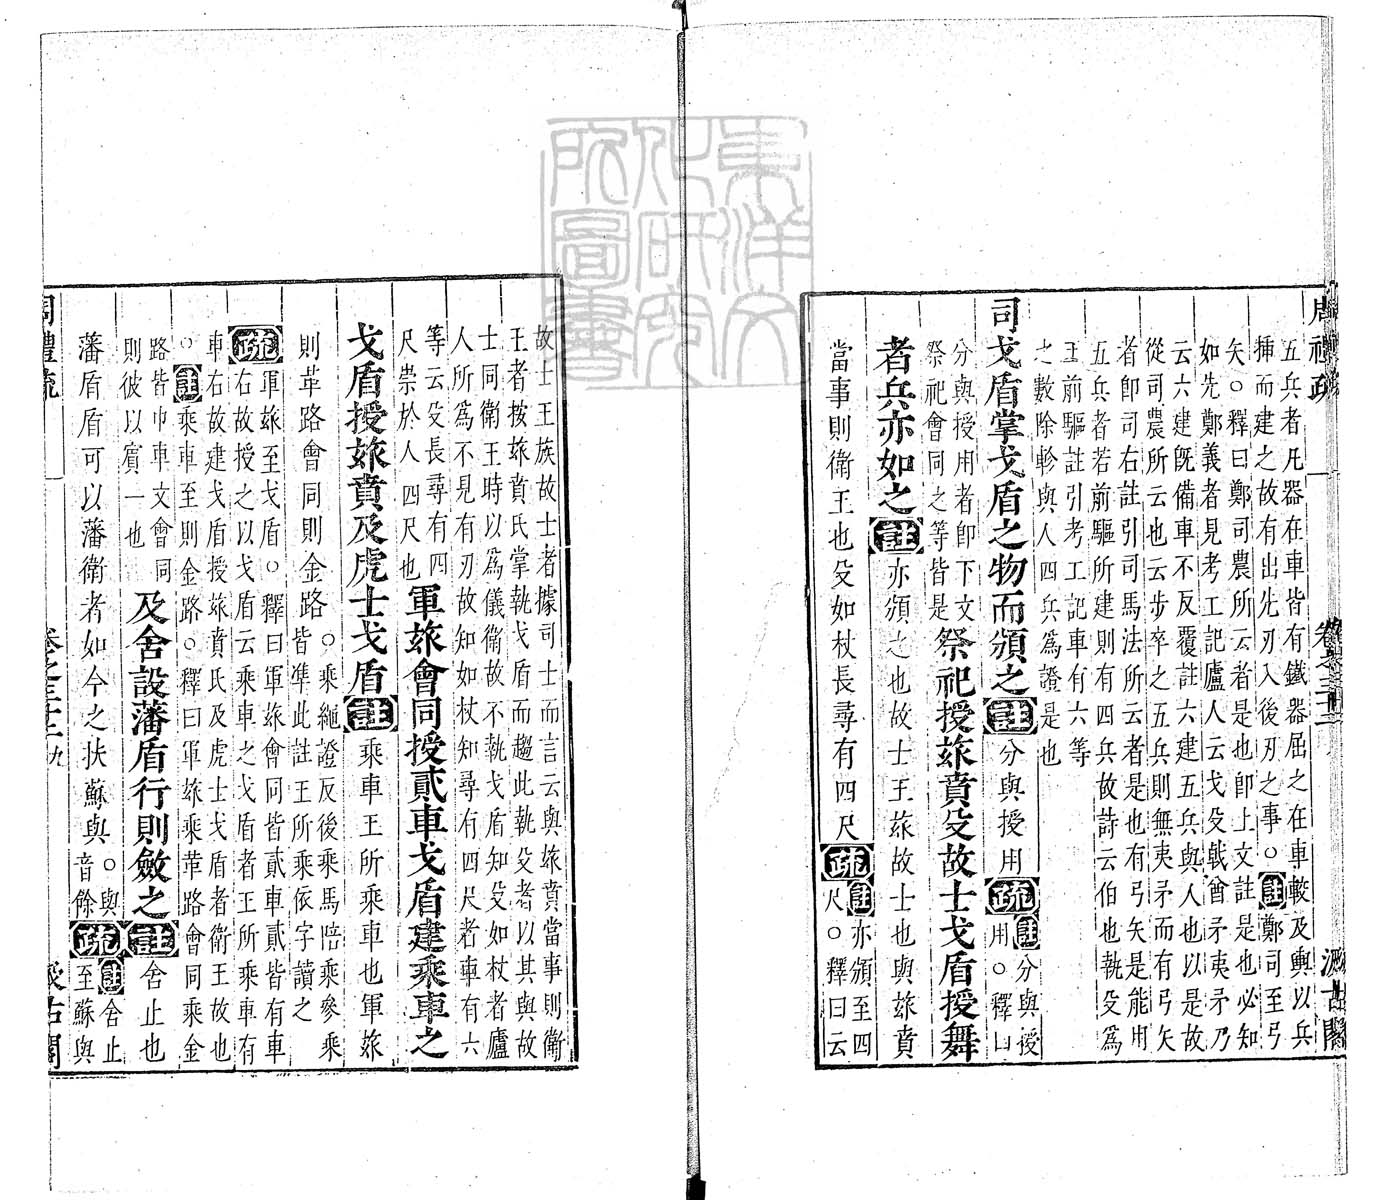 周禮疏
卷之三十二
汲古閣
五兵者凡器在車皆有鐵器屈之在車較及輿以兵
揷而建之故有出先刃入後刃之事○註鄭司至弓
矢○釋曰鄭司農所云者是也卽上文註是也必知
如先鄭義者見考工記廬人云戈殳戟酋矛夷矛乃
云六建旣備車不反覆註六建五兵與人也以是故
從司農所云也云步卒之五兵則無夷矛而有弓矢
者卽司右註引司馬法所云者是也有弓矢是能用
五兵者若前驅所建則有四兵故詩云伯也執殳爲
王前驅註引考工記車有六等
之數除軫與人四兵爲證是也
司戈盾掌戈盾之物而頒之註分與授用疏註分與授
用○釋曰
分與授用者卽下文
祭祀會同之等皆是祭祀授旅賁殳故士戈盾授舞
者兵亦如之註亦頒之也故士王族故士也與旅賁
當事則衛王也殳如杖長尋有四尺疏註亦頒至四
尺○釋曰云
故士王族故士者據司士而言云與旅賁當事則衛
王者按旅賁氏掌執戈盾而趨此執殳者以其與故
士同衛王時以爲儀衛故不執戈盾知殳如杖者廬
人所爲不見有刃故知如杖知尋有四尺者車有六
等云殳長尋有四
尺崇於人四尺也軍旅會同授貳車戈盾建乘車之
戈盾授旅賁及虎士戈盾註乘車王所乘車也軍旅
則革路會同則金路○乘繩證反後乘馬陪乘參乘
皆準此註王所乘依字讀之
疏軍旅至戈盾○釋曰軍旅會同皆貳車貳皆有車
右故授之以戈盾云乘車之戈盾者王所乘車有
車右故建戈盾授旅賁氏及虎士戈盾者衛王故也
○註乘車至則金路○釋曰軍旅乘革路會同乘金
路皆巾車文會同
則彼以賔一也及舍設藩盾行則斂之註舍止也
藩盾盾可以藩衛者如今之扶蘇與○與
音餘疏註舍止
至蘇與
周禮疏
卷之三十二
九
汲古閣